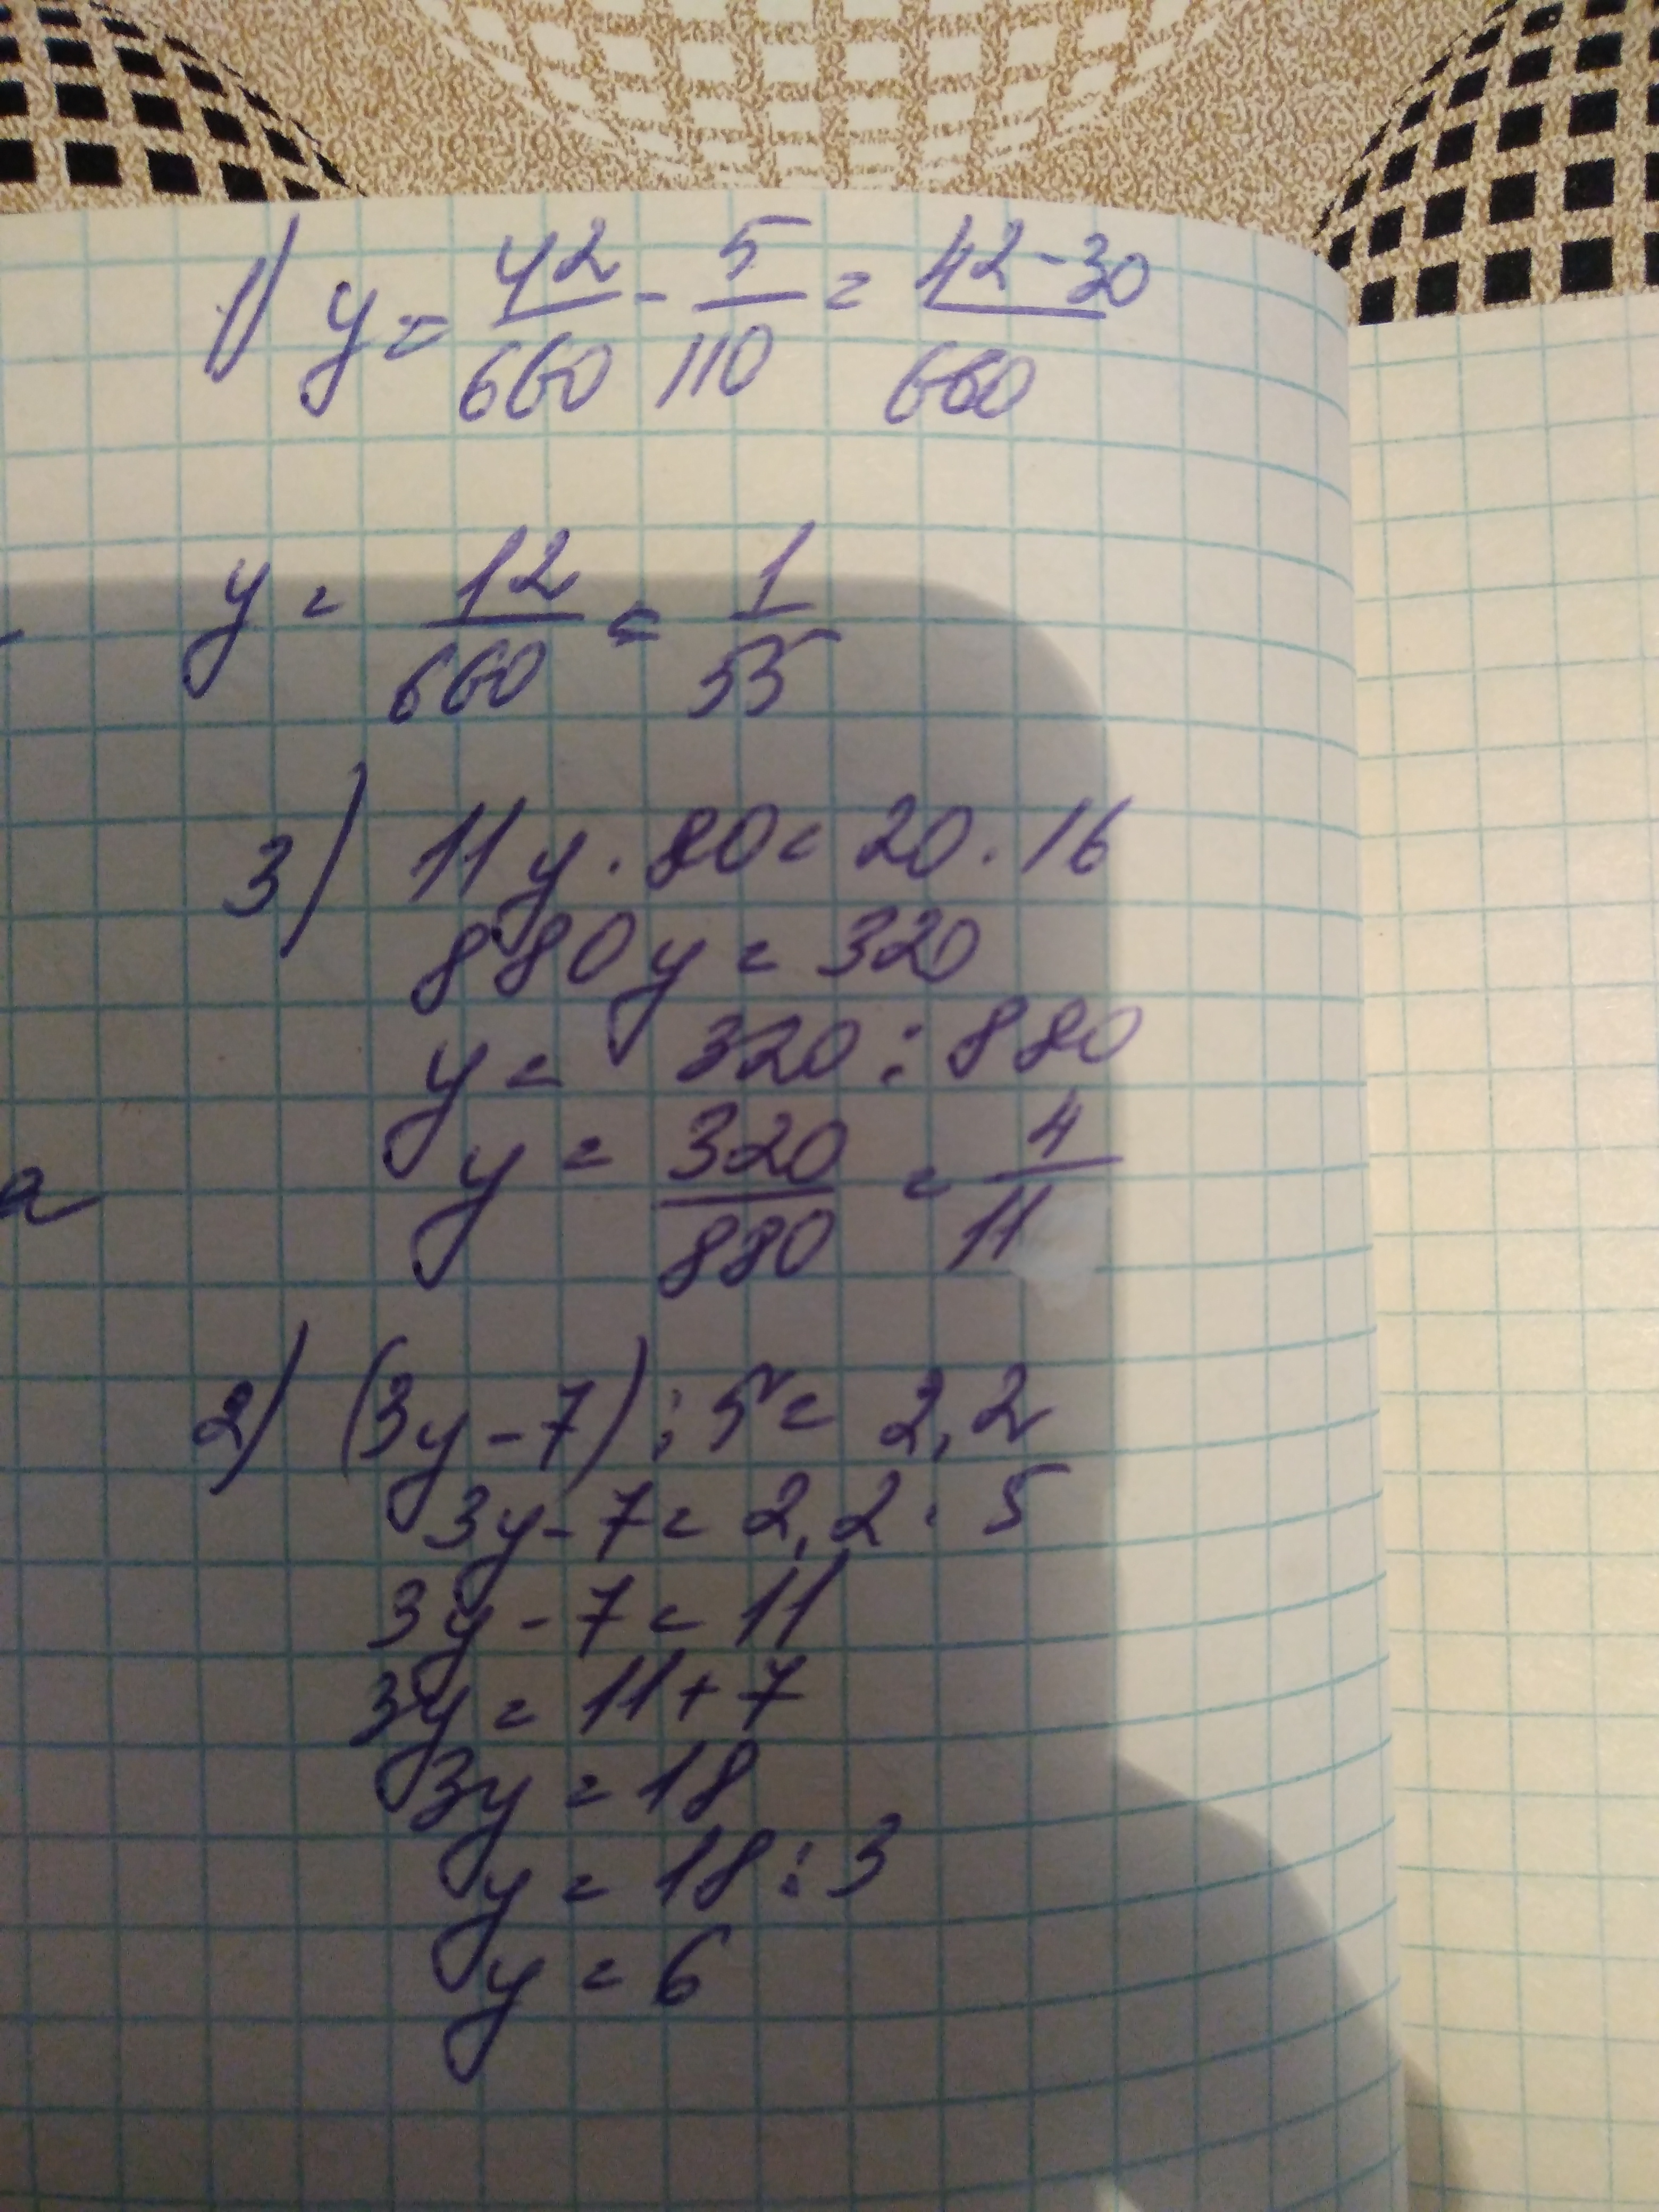 1) y = 42/660 - 5/110 = 42-30/660
y = 12/660 = 1/55
3) 11y · 80 = 20 · 16
880y = 320
y = 320 : 880
y = 320/880 = 4/11
a
2) (3y - 7) : 5 = 2,2
3y - 7 = 2,2 · 5
3y - 7 = 11
3y = 11 + 7
3y = 18
y = 18 : 3
y = 6